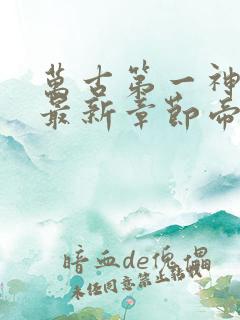 萬古第一神
最新章節帝
暗血de傀儡
未经同意禁止转载